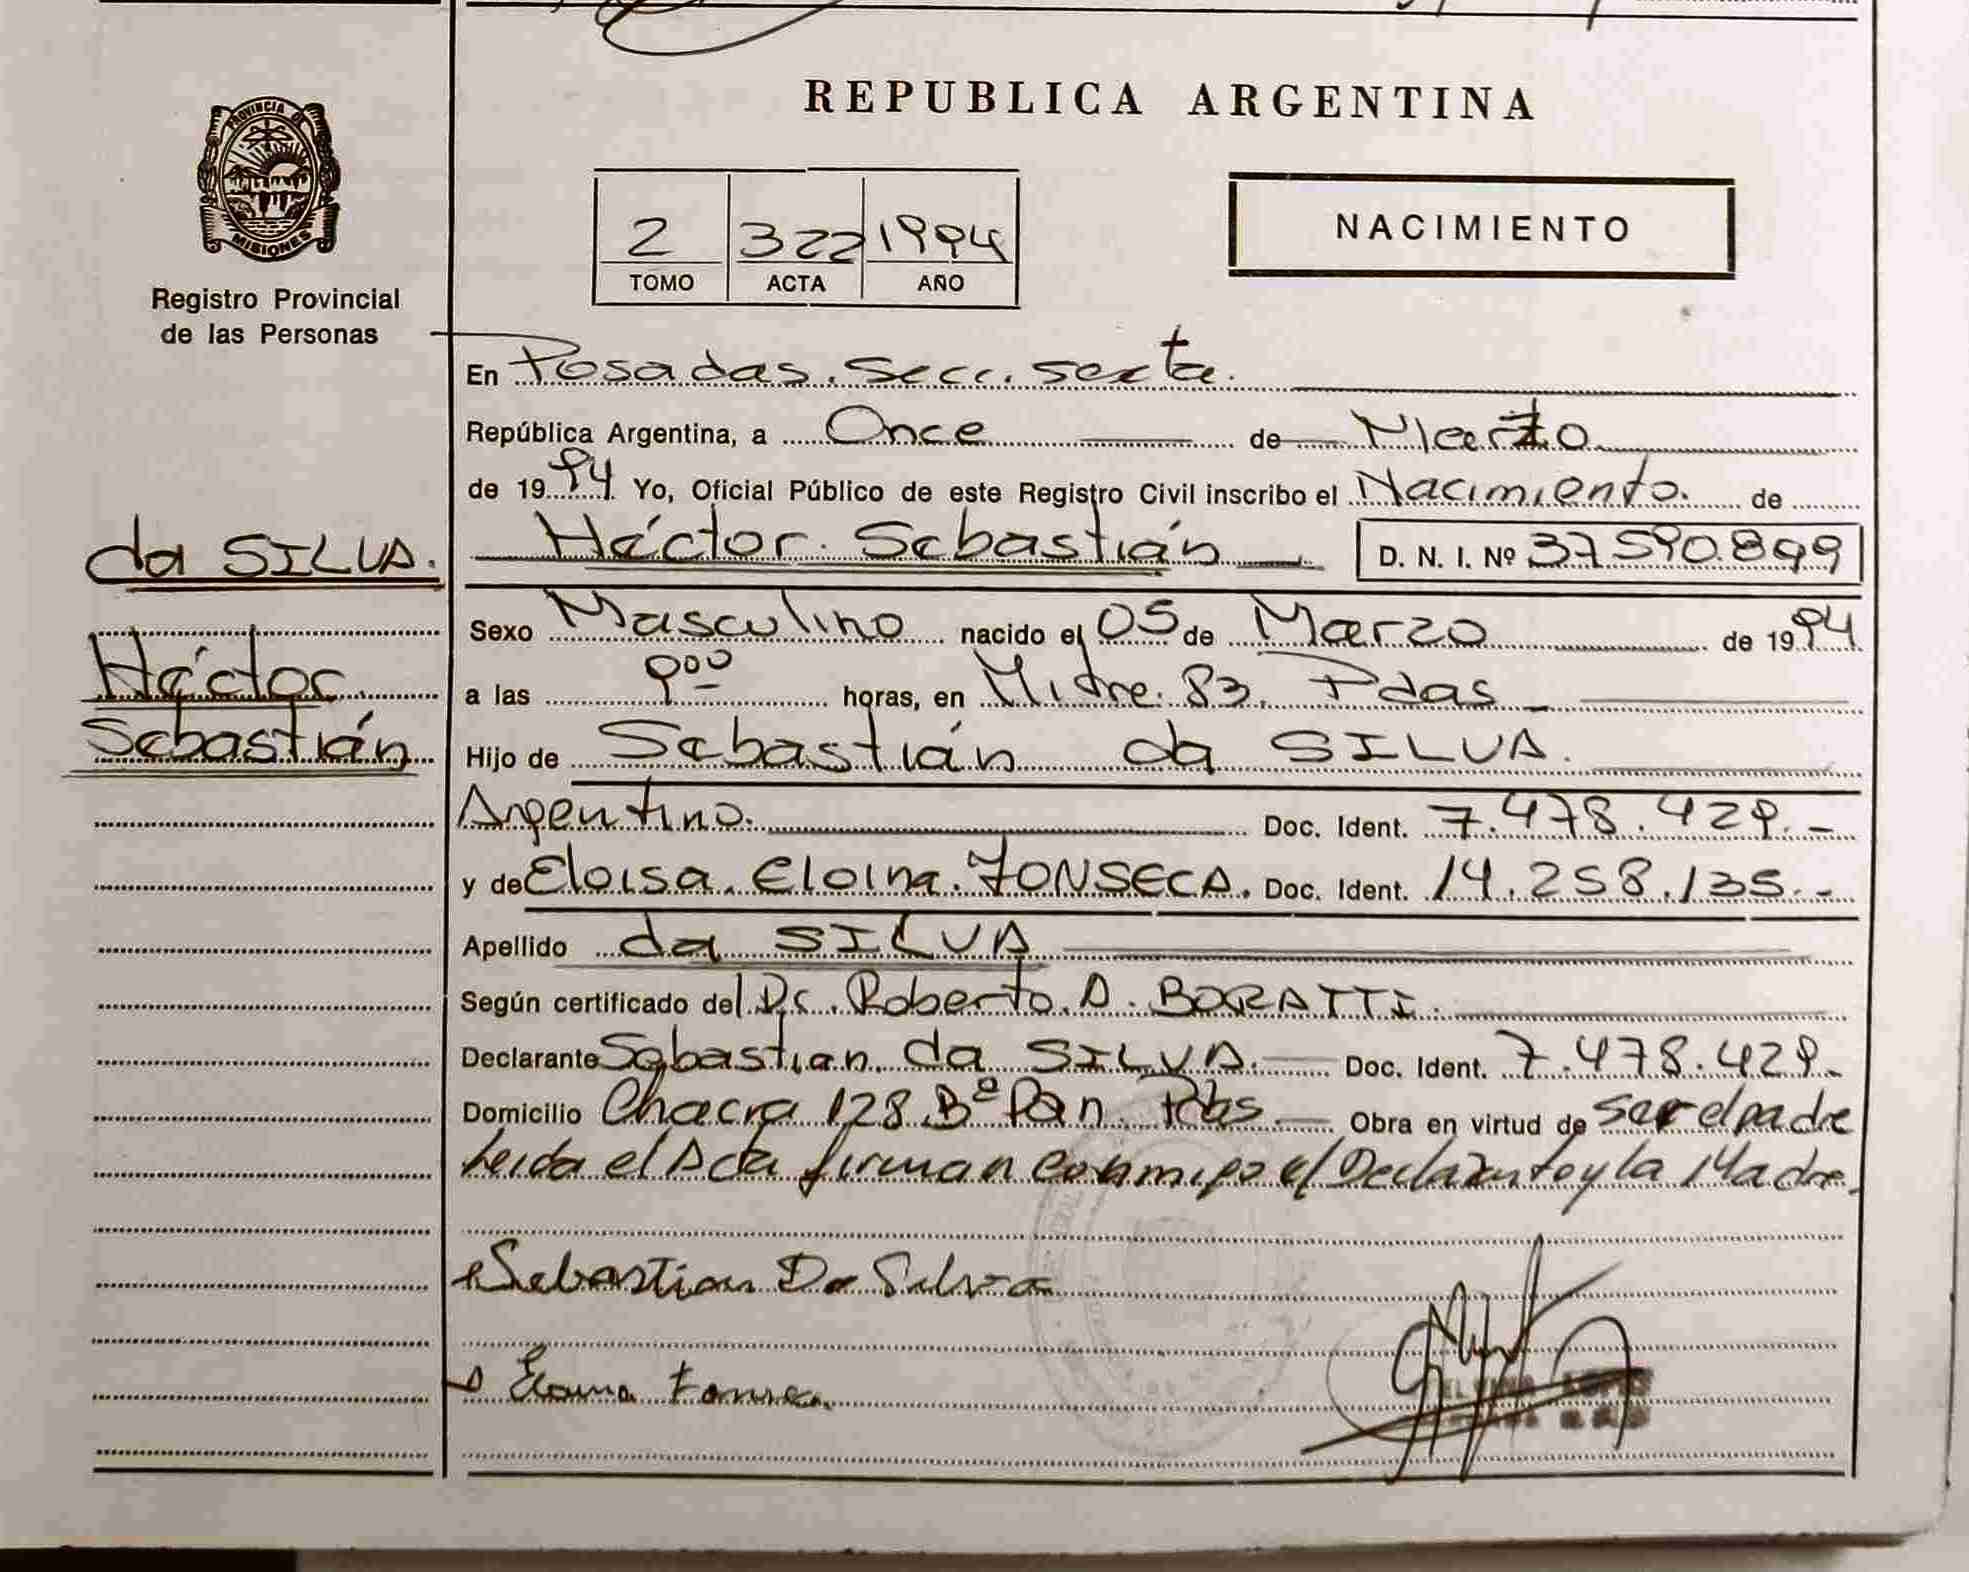 REPUBLICA ARGENTINA
PROVINCIA DE
MISIONES
Registro Provincial
de las Personas
2 322 1994
TOMO ACTA AÑO
NACIMIENTO
En Posadas. Secc. sexta.
República Argentina, a Once de Marzo
de 1994 Yo, Oficial Público de este Registro Civil inscribo el Nacimiento. de
da SILVA.
Héctor Sebastián D. N. I. Nº 37590.899
Sexo Masculino nacido el 05 de Marzo de 1994
Héctor
a las 9⁰⁰ horas, en Mitre. 83. Pdas
Sebastián
Hijo de Sebastián da SILVA.
Argentino. Doc. Ident. 7.478.429.-
y de Eloisa. Eloina. FONSECA. Doc. Ident. 14.258.135.-
Apellido da SILVA
Según certificado del Dr. Roberto. A. BORATTI.
Declarante Sebastian da SILVA. Doc. Ident. 7.478.429.
Domicilio Chacra 128 Bº Pan. Obra en virtud de ser el padre
Leida el Acta firman conmigo el Declarante y la Madre.
Sebastian Da Silva
Fonseca